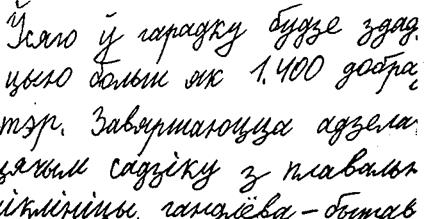 Ўсяго ў гарадку будзе здад
цыю больш як 1.400 добра
тэр. Завяршаюцца адзела
цячым садзіку з плаваль
іклініцы, гандлёва-бытав